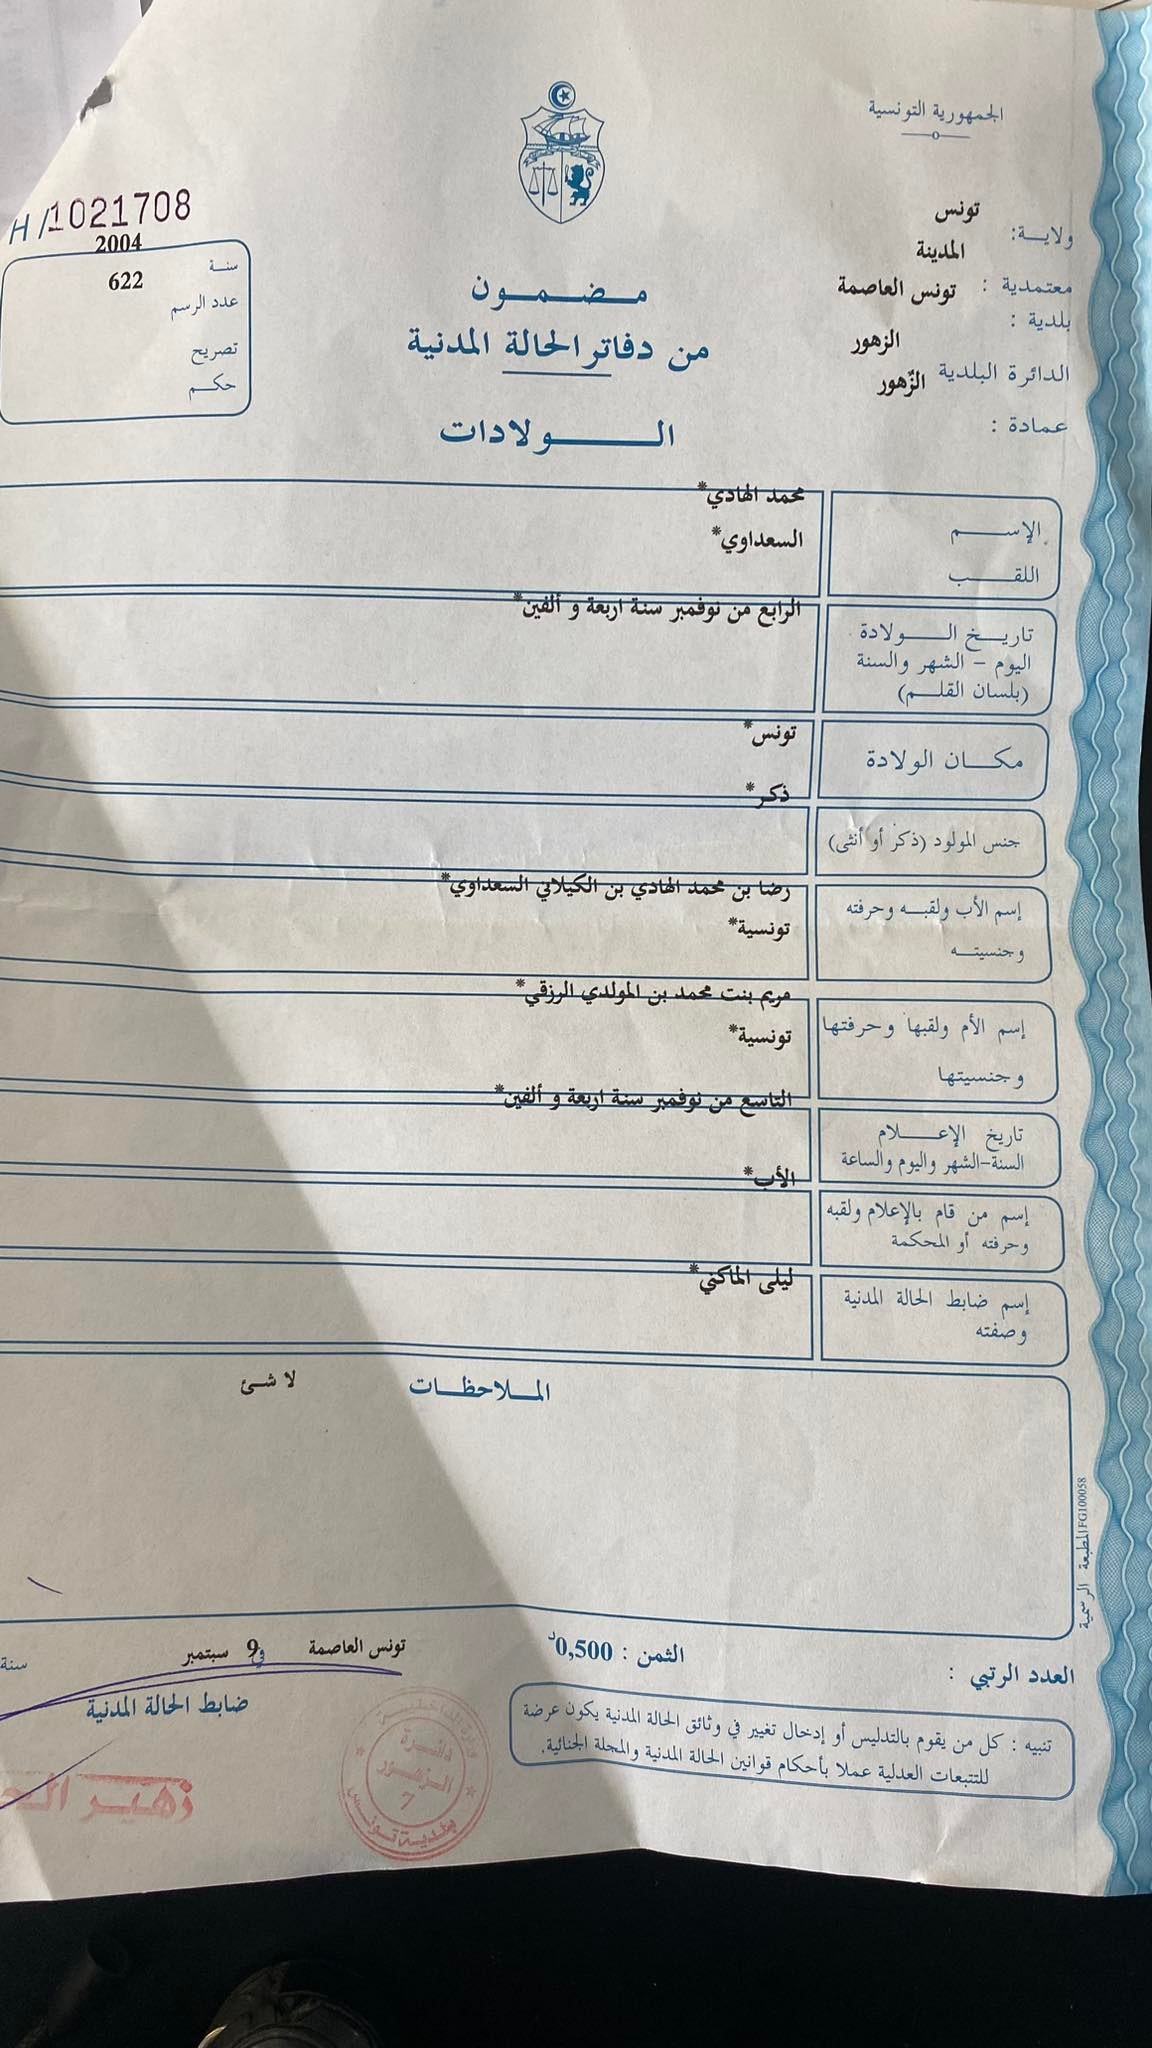 الجمهورية التونسية
H/1021708
ولاية: تونس
المدينة
معتمدية : تونس العاصمة
بلدية :
الزهور
الدائرة البلدية الزّهور
عمادة :
سنة 2004
عدد الرسم 622
تصريح
حكم
مضمون
من دفاتر الحالة المدنية
الولادات
الإسم محمد الهادي*
اللقب السعداوي*
تاريخ الولادة
اليوم - الشهر والسنة
(بلسان القلم)
الرابع من نوفمبر سنة اربعة و ألفين*
مكان الولادة تونس*
جنس المولود (ذكر أو أنثى) ذكر*
إسم الأب ولقبه وحرفته
وجنسيته
رضا بن محمد الهادي بن الكيلاني السعداوي*
تونسية*
إسم الأم ولقبها وحرفتها
وجنسيتها
مريم بنت محمد بن المولدي الرزقي*
تونسية*
تاريخ الإعلام
السنة-الشهر واليوم والساعة
التاسع من نوفمبر سنة اربعة و ألفين*
إسم من قام بالإعلام ولقبه
وحرفته أو المحكمة
الأب*
إسم ضابط الحالة المدنية
وصفته
ليلى الماكني*
الملاحظات لا شئ
المطبعة الرسمية FG100058
العدد الرتبي :
الثمن : 0,500د
تونس العاصمة في 9 سبتمبر سنة
ضابط الحالة المدنية
تنبيه : كل من يقوم بالتدليس أو إدخال تغيير في وثائق الحالة المدنية يكون عرضة
للتتبعات العدلية عملا بأحكام قوانين الحالة المدنية والمجلة الجنائية.
وزارة الداخلية
دائرة
الزهور
7
بلدية تونس
زهير